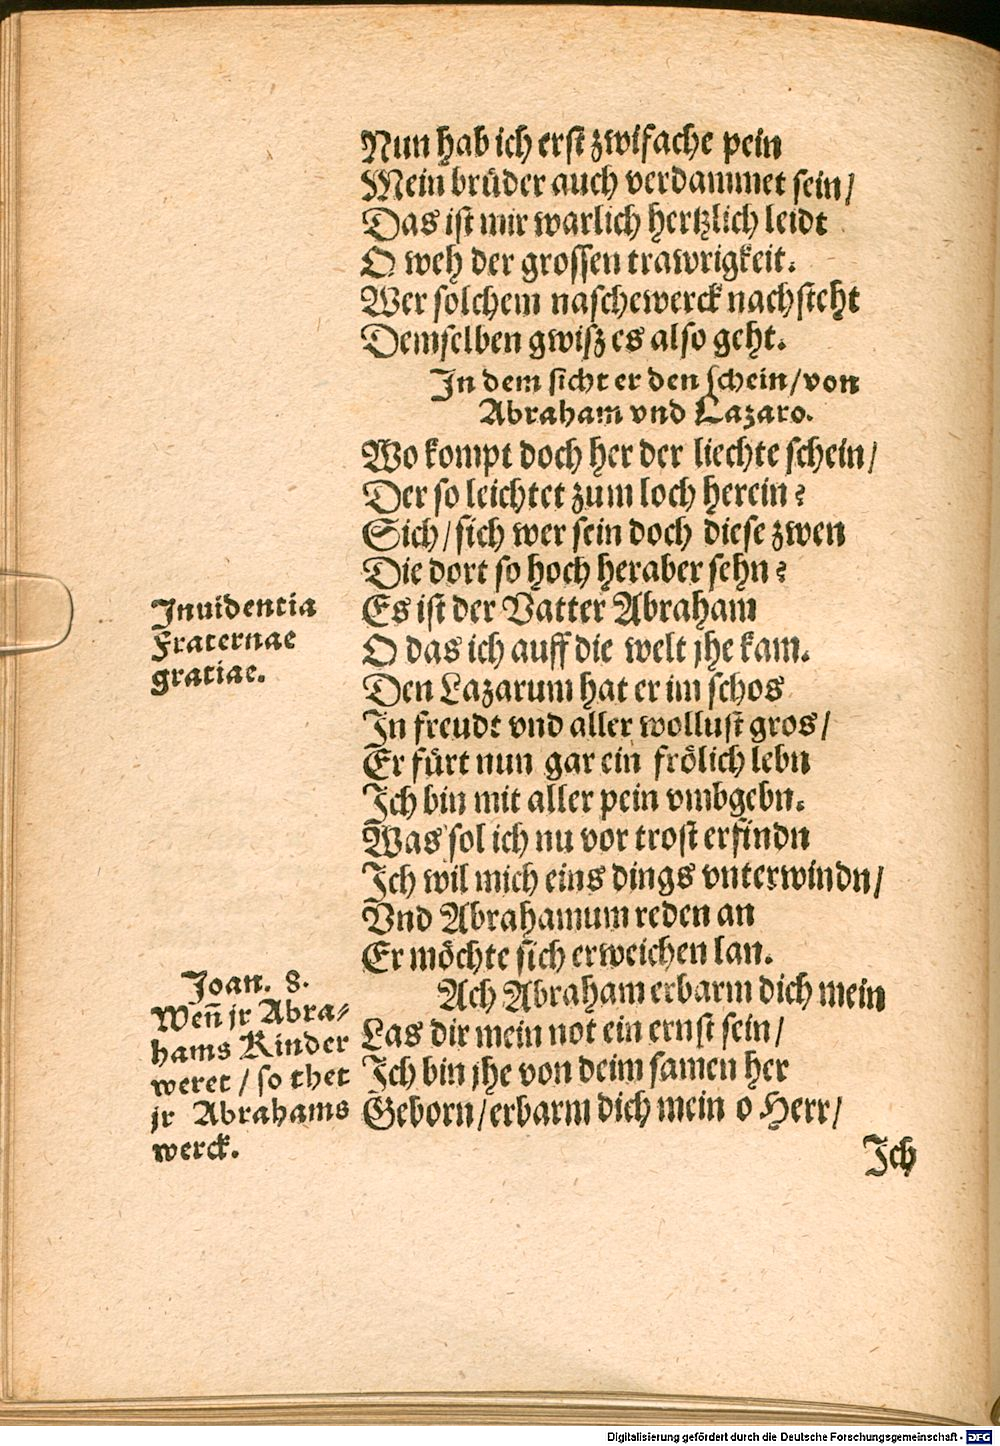 Nun hab ich erst zwifache pein
Mein brüder auch verdammet sein/
Das ist mir warlich hertzlich leidt
O weh der grossen trawrigkeit.
Wer solchem naschewerck nachsteht
Demselben gwisz es also geht.
In dem sicht er den schein/von
Abraham vnd Lazaro.
Wo kompt doch her der liechte schein/
Der so leichtet zum loch herein?
Sich/sich wer sein doch diese zwen
Die dort so hoch heraber sehn?
Es ist der Vatter Abraham
O das ich auff die welt jhe kam.
Den Lazarum hat er im schos
In freudt vnd aller wollust gros/
Er fürt nun gar ein frölich lebn
Ich bin mit aller pein vmbgebn.
Was sol ich nu vor trost erfindn
Ich wil mich eins dings vnterwindn/
Vnd Abrahamum reden an
Er möchte sich erweichen lan.
Ach Abraham erbarm dich mein
Las dir mein not ein ernst sein/
Ich bin jhe von deim samen her
Geborn/erbarm dich mein o Herr/
Ich
Inuidentia
Fraternae
gratiae.
Joan. 8.
Wen̄ jr Abra-
hams Kinder
weret / so thet
jr Abrahams
werck.
Digitalisierung gefördert durch die Deutsche Forschungsgemeinschaft - DFG